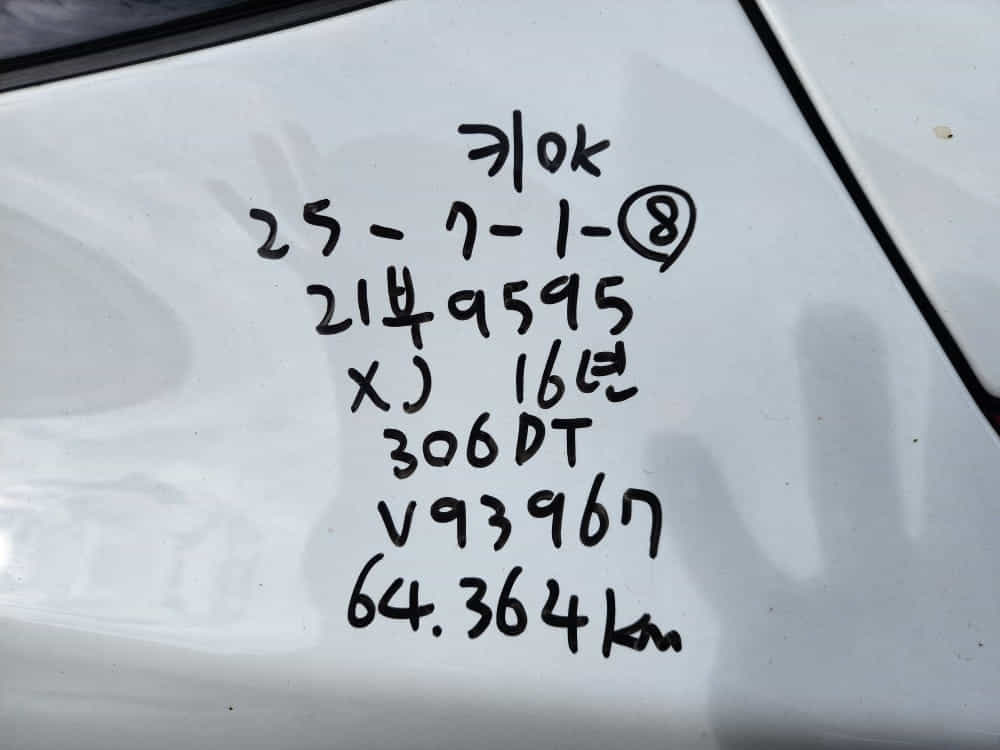 키OK
25-7-1-⑧
21부9595
XJ 16년
306DT
V93967
64.364km